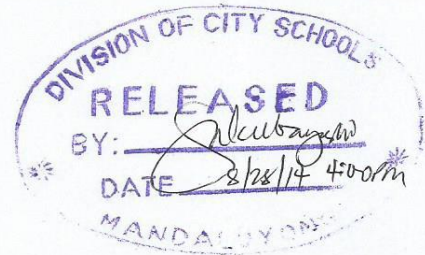 DIVISION OF CITY SCHOOLS
RELEASED
BY:
DATE 8/28/14 4:00PM
MANDALUYONG